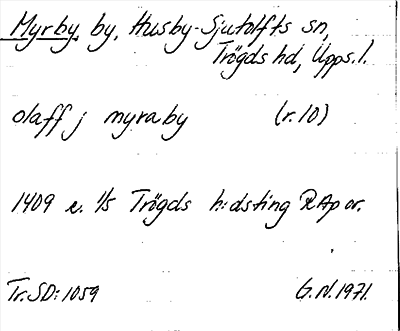 Myrby by, Husby-Sjutolfts sn,
Trögds hd, Upps.l.
olaff j myraby (r.10)
1409 e. 1/5 Trögds h:dsting RAp or.
Tr.SD:1059 G.N.1971.